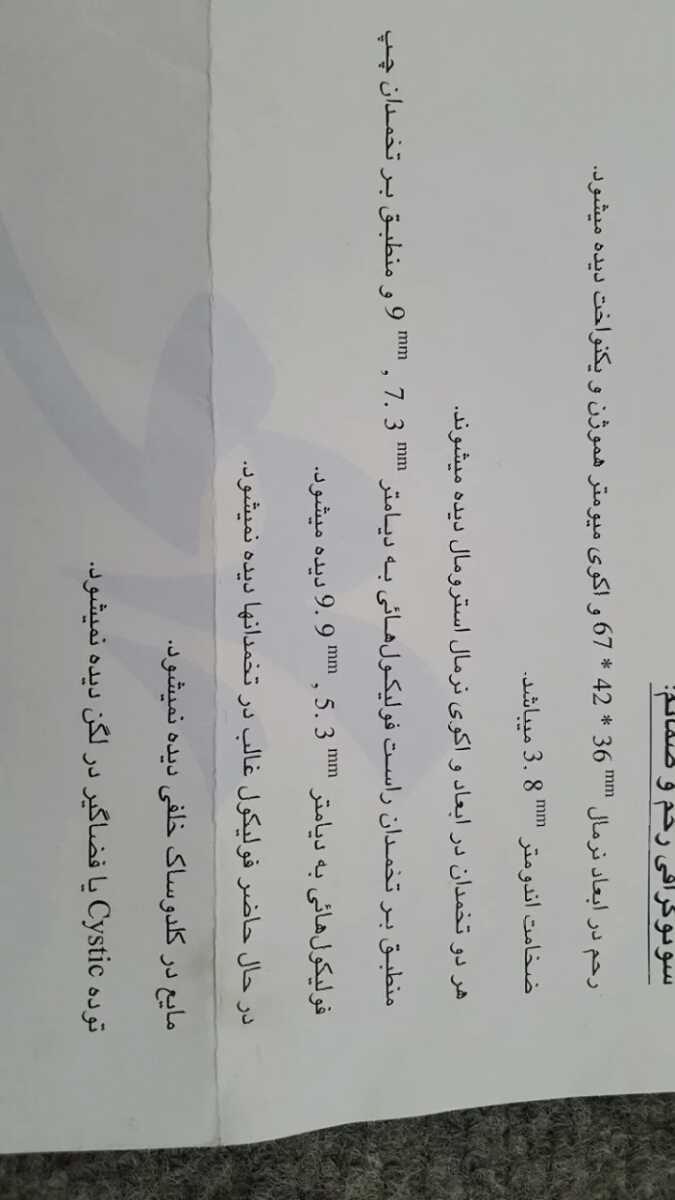 سونوگرافی رحم و ضمائم:
رحم در ابعاد نرمال 67 * 42 * 36 mm و اکوی میومتر هموژن و یکنواخت دیده میشود.
ضخامت اندومتر 3. 8 mm میباشد.
هر دو تخمدان در ابعاد و اکوی نرمال استرومال دیده میشوند.
منطبق بر تخمدان راست فولیکول‌هائی به دیامتر 9 mm , 7. 3 mm و منطبق بر تخمدان چپ
فولیکول‌هائی به دیامتر 9. 9 mm , 5. 3 mm دیده میشود.
در حال حاضر فولیکول غالب در تخمدانها دیده نمیشود.
مایع در کلدوساک خلفی دیده نمیشود.
توده Cystic یا فضاگیر در لگن دیده نمیشود.